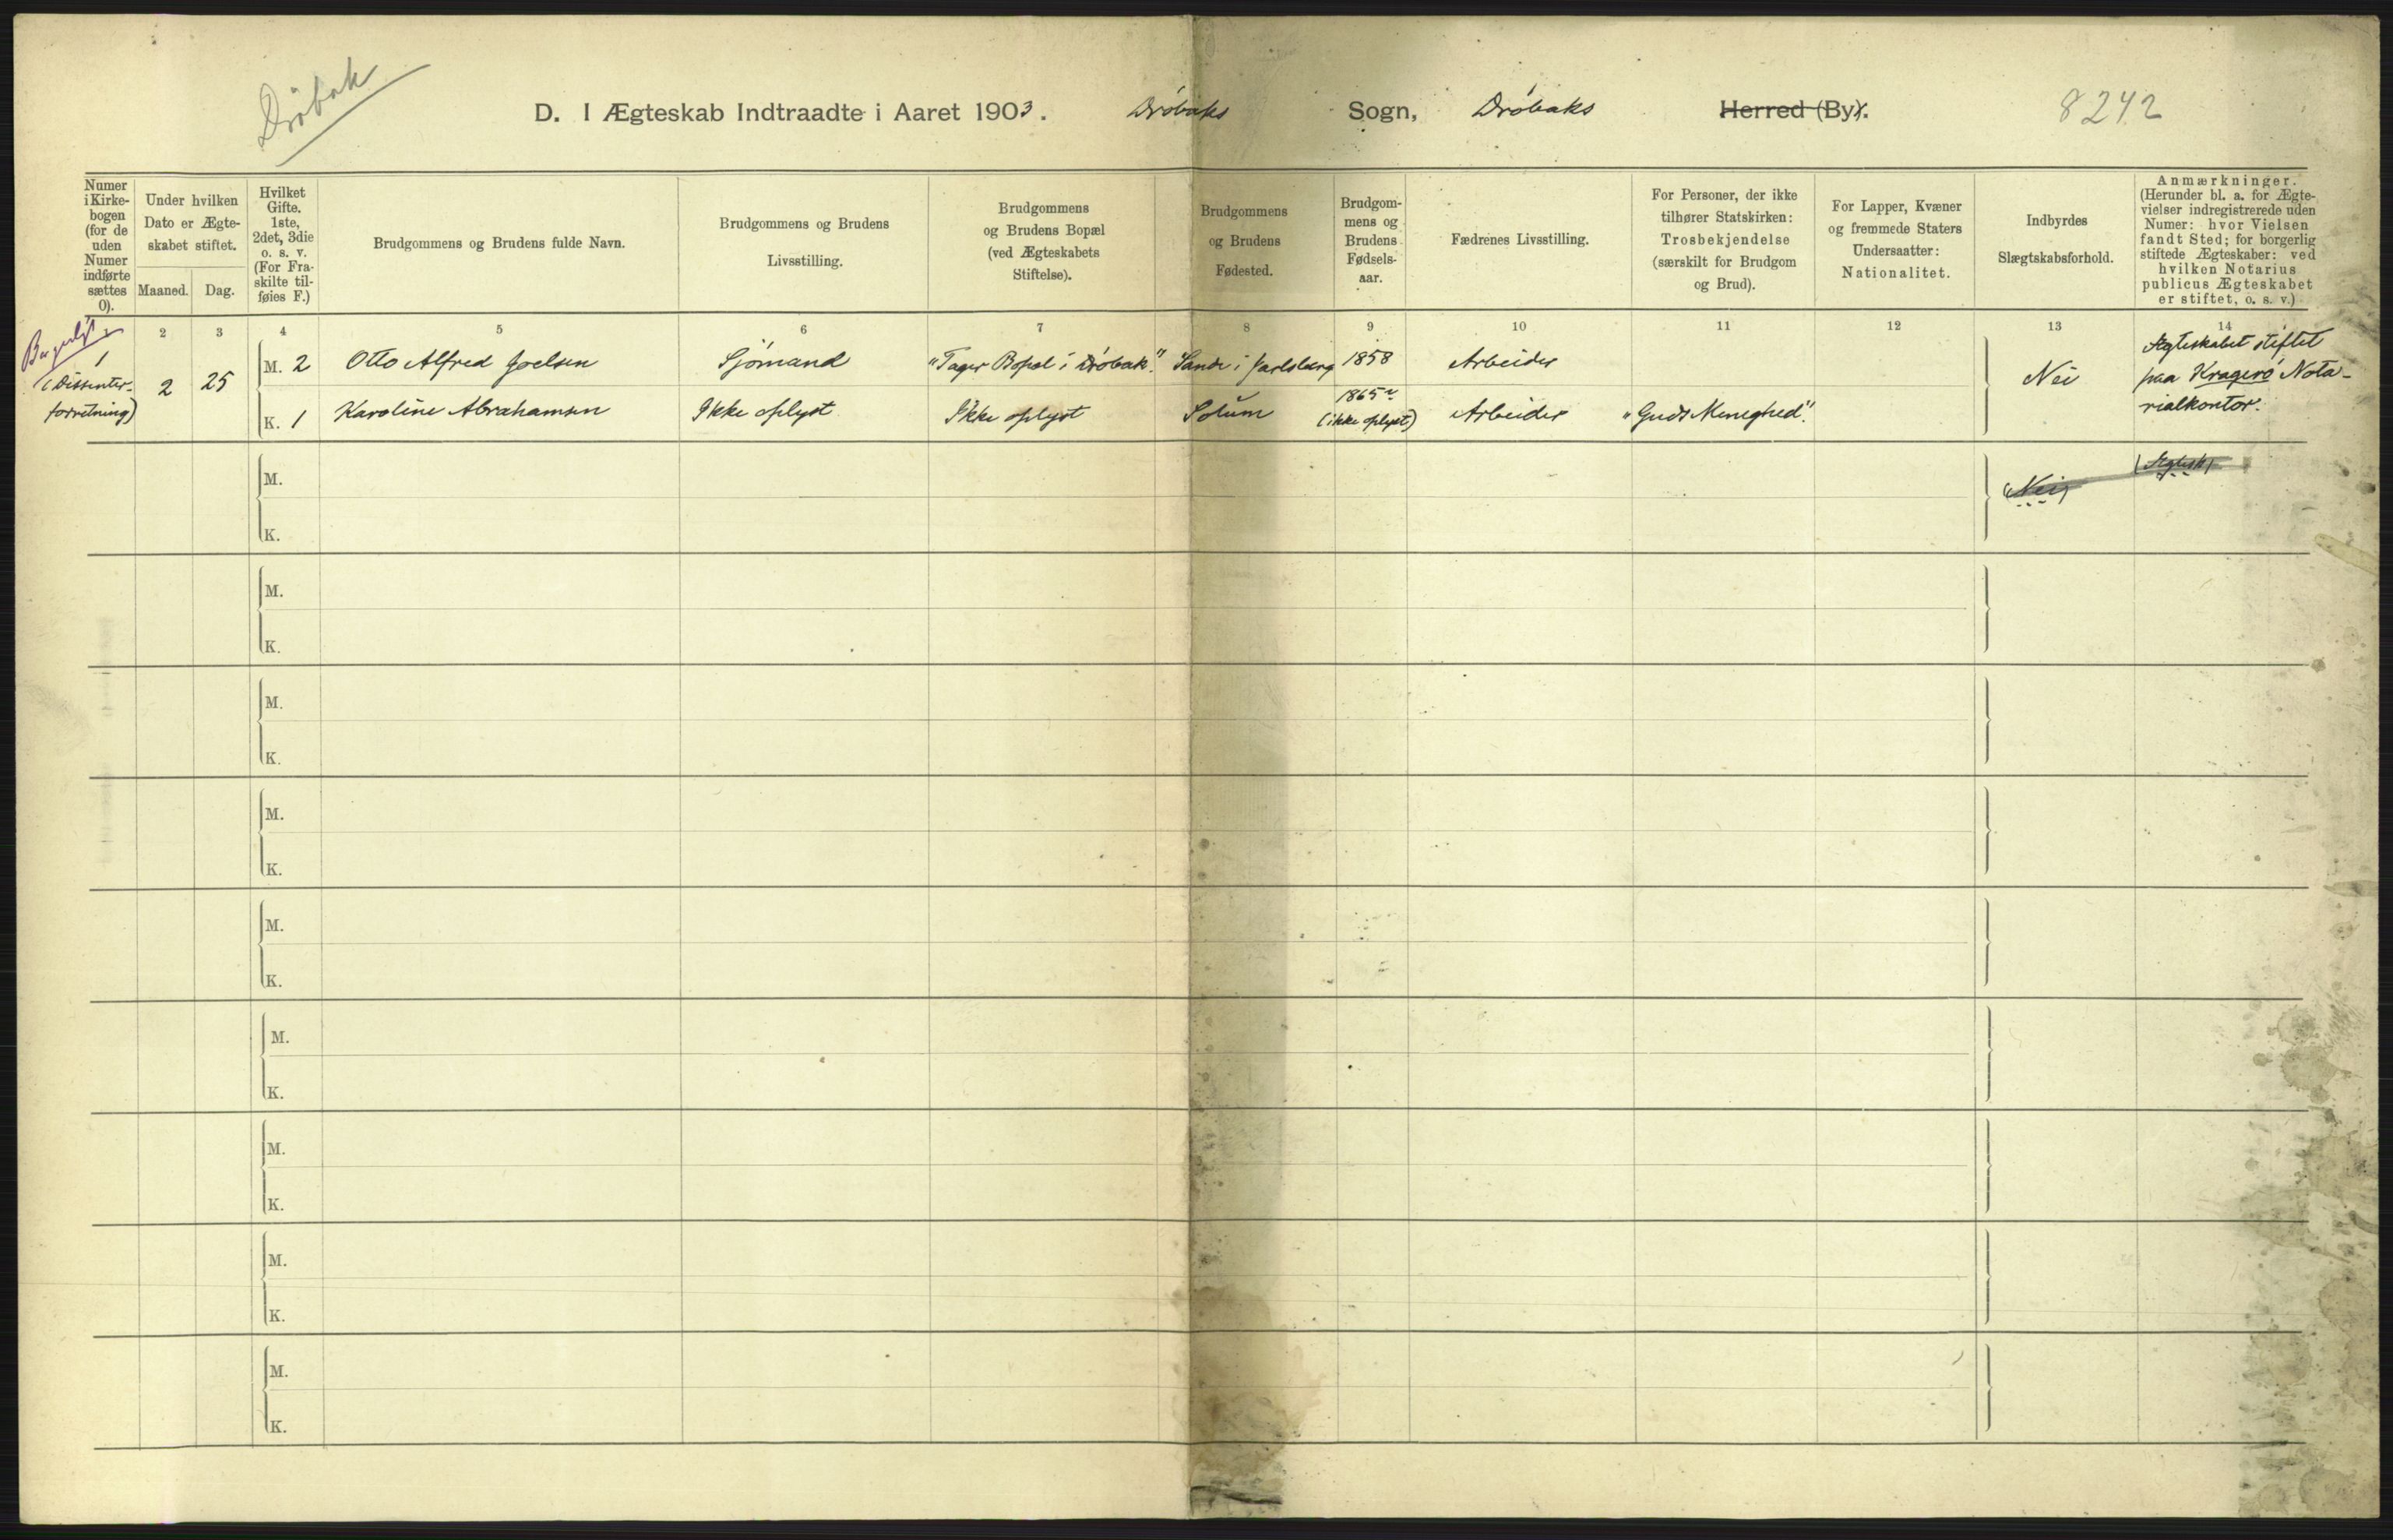 Dröbak
D. I Ægteskab Indtraadte i Aaret 1903. Dröbaks Sogn, Dröbaks Herred (By). 8242
Numer
i Kirke-
bogen
(for de
uden
Numer
indførte
sættes
0).
Under hvilken
Dato er Ægte-
skabet stiftet.
Maaned. Dag.
Hvilket
Gifte.
1ste,
2det, 3die
o. s. v.
(For Fra-
skilte til-
føies F.)
Brudgommens og Brudens fulde Navn.
Brudgommens og Brudens
Livsstilling.
Brudgommens
og Brudens Bopæl
(ved Ægteskabets
Stiftelse).
Brudgommens
og Brudens
Fødested.
Brudgom-
mens og
Brudens
Fødsels-
aar.
Fædrenes Livsstilling.
For Personer, der ikke
tilhører Statskirken:
Trosbekjendelse
(særskilt for Brudgom
og Brud).
For Lapper, Kvæner
og fremmede Staters
Undersaatter:
Nationalitet.
Indbyrdes
Slægtskabsforhold.
Anmærkninger.
(Herunder bl. a. for Ægte-
vielser indregistrerede uden
Numer: hvor Vielsen
fandt Sted; for borgerlig
stiftede Ægteskaber: ved
hvilken Notarius
publicus Ægteskabet
er stiftet, o. s. v.)
2 3 4 5 6 7 8 9 10 11 12 13 14
1
(Dissenter-
forretning)
2 25
M. 2 Otto Alfred Joelsen Sjömand "Tager Bopæl i Dröbak." Sande i Jarlsberg 1858 Arbeider
K. 1 Karoline Abrahamsen Ikke oplyst Ikke oplyst Solum 1865 (ikke oplyst) Arbeider "Guds Menighed".
Nei
Ægteskabet stiftet
paa Kragerö Nota-
rialkontor.
(Nei)
M.
K.
M.
K.
M.
K.
M.
K.
M.
K.
M.
K.
M.
K.
M.
K.
M.
K.